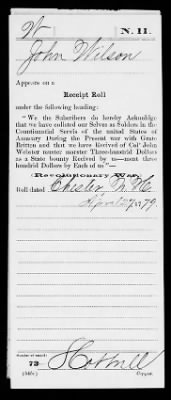 W N. H.
John Wilson
Appears on a
Receipt Roll
under the following heading:
"We the Subscribers do hereby Acknollge
that we have enlisted our Selves as Solders in the
Constinantial Servis of the united States of
Amearay During the Present war with Grate
Britton and that we have Recived of Col° John
Webster muster marster Three-hundrid Dollars
as a State bounty Recived by us—ment three
hundrid Dollars by Each of us"—
(Revolutionary War.)
Roll dated Chester N. H.
April 27, 1779.
Number of record:
73
S Cottrell
(566c) Copyist.